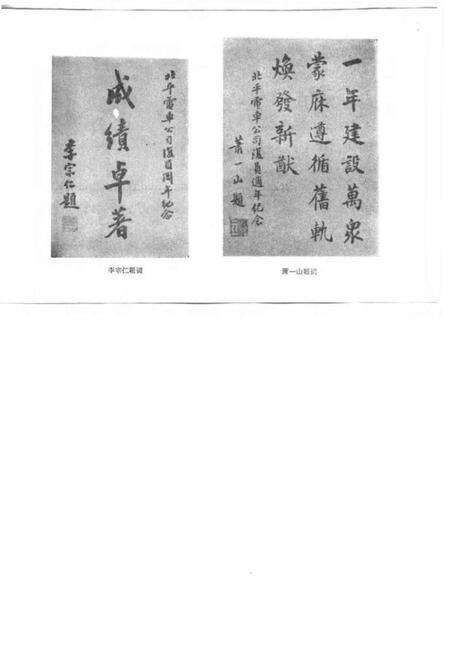 北平電車公司復員周年紀念
成績卓著
李宗仁題
李宗仁题词
一年建設萬衆
蒙庥遵循舊軌
煥發新猷
北平電車公司復員週年紀念
蕭一山題
萧一山题词